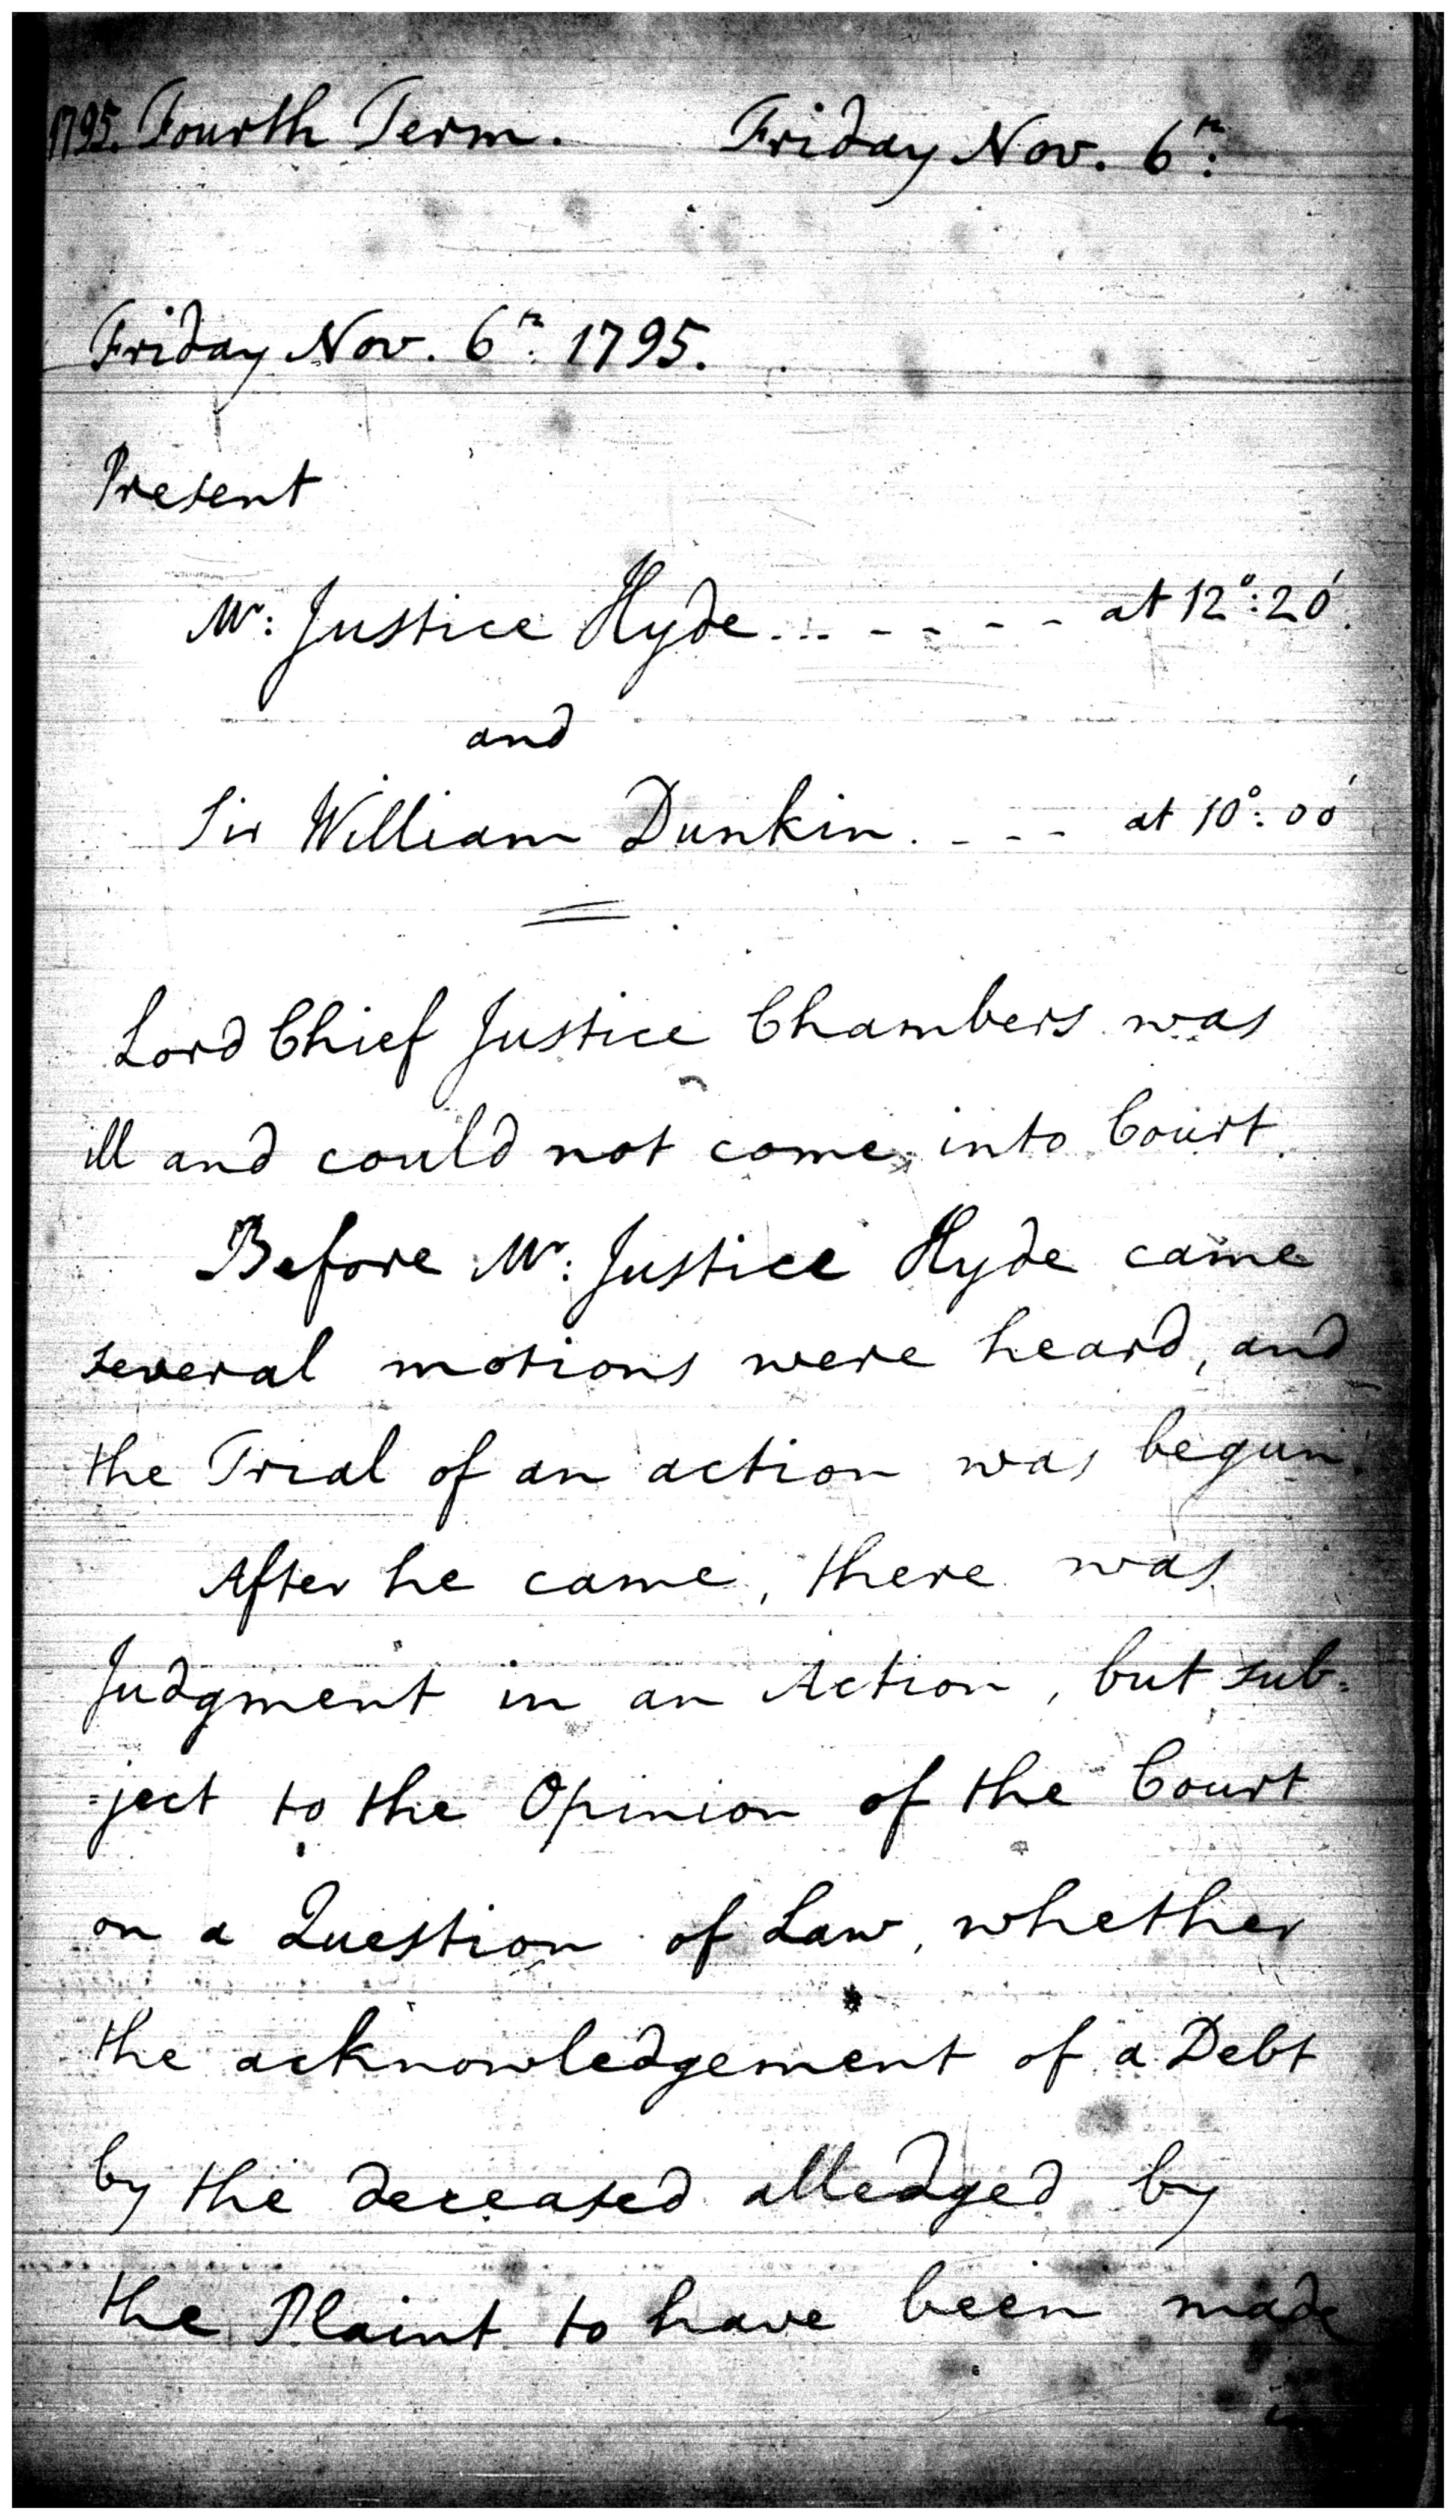 1795. Fourth Term. Friday Nov. 6th:
Friday Nov. 6th: 1795.
Present
Mr: Justice Hyde... - - - - - at 12°:20'.
and
Sir William Dunkin. - - - at 10°:00'
Lord Chief Justice Chambers was
ill and could not come into Court.
Before Mr: Justice Hyde came
several motions were heard, and
the Trial of an action was begun.
After he came, there was
Judgment in an Action, but sub=
=ject to the Opinion of the Court
on a Question of Law, whether
the acknowledgement of a Debt
by the deceased alledged by
the Plaint to have been made